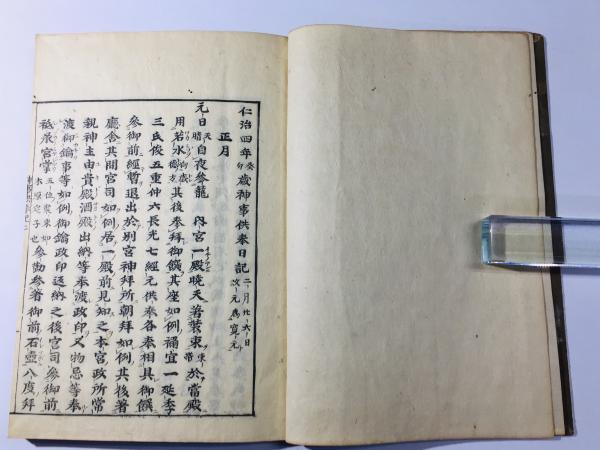 仁治四年癸卯歳神事供奉日記二月廿六日改元為寛元
正月
元日天晴自夜參籠内宮一殿曉天著束帶於當殿
用若水御方其後奉拜御饌其座如例禰宜一延季
三氏俊五重仲六長光七經元供奉各奉相具御饌
參御前經暫退出於別宮神拜所朝拜如例其後著
廳舎其間宮司如例居一殿前見知之本宮政所常
親神主由貴殿酒殿出納等奉渡政印又物忌等奉
渡御鑰事等如例御鑰政印送納之後宮司參御前
祗承宮掌五位束帶也參勤參著御前石壺八度拜